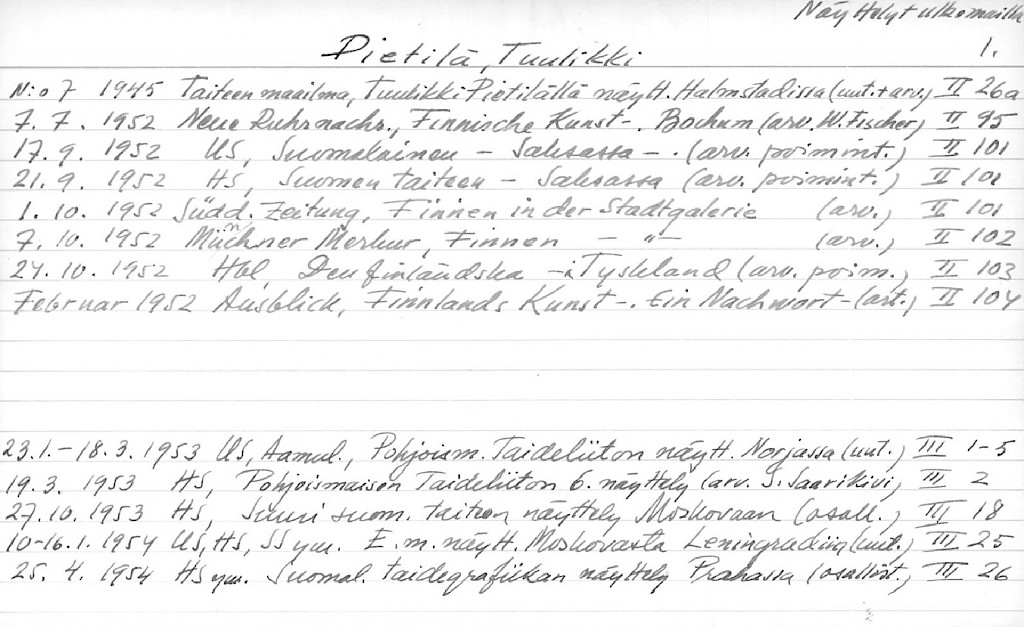 Näyttelyt ulkomailla
1.
Pietilä, Tuulikki
N:o 7 1945 Taiteen maailma, Tuulikki Pietilällä näytt. Halmstadissa (uut. + arv.) II 26a
7. 7. 1952 Neue Ruhrnachr., Finnische Kunst -. Bochum (arv. W. Fischer) II 95
17. 9. 1952 US, Suomalainen - Saksassa -. (arv. poimint.) II 101
21. 9. 1952 HS, Suomen taiteen - Saksassa (arv. poimint.) II 101
1. 10. 1952 Südd. Zeitung, Finnen in der Stadtgalerie (arv.) II 101
7. 10. 1952 Münchner Merkur, Finnen - " - (arv.) II 102
24. 10. 1952 Hbl, Den finländska - i Tyskland (arv. poim.) II 103
Februar 1952 Ausblick, Finnlands Kunst -. Ein Nachwort - (art.) II 104
23.1. - 18.3. 1953 US, Aamul., Pohjoism. Taideliiton näytt. Norjassa (uut.) III 1-5
19.3. 1953 HS, Pohjoismaisen Taideliiton 6. näyttely (arv. S. Saarikivi) III 2
27.10. 1953 HS, Suuri suom. taiteen näyttely Moskovaan (osall.) III 18
10-16.1. 1954 US, HS, SS ym. E.m. näytt. Moskovasta Leningradiin (uut.) III 25
25. 4. 1954 HS ym. Suomal. taidegrafiikan näyttely Prahassa (osallist.) III 26